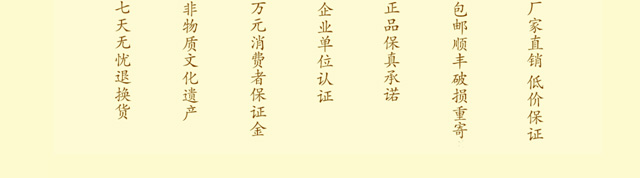 厂家直销 低价保证
包邮顺丰破损重寄
正品保真承诺
企业单位认证
万元消费者保证金
非物质文化遗产
七天无忧退换货